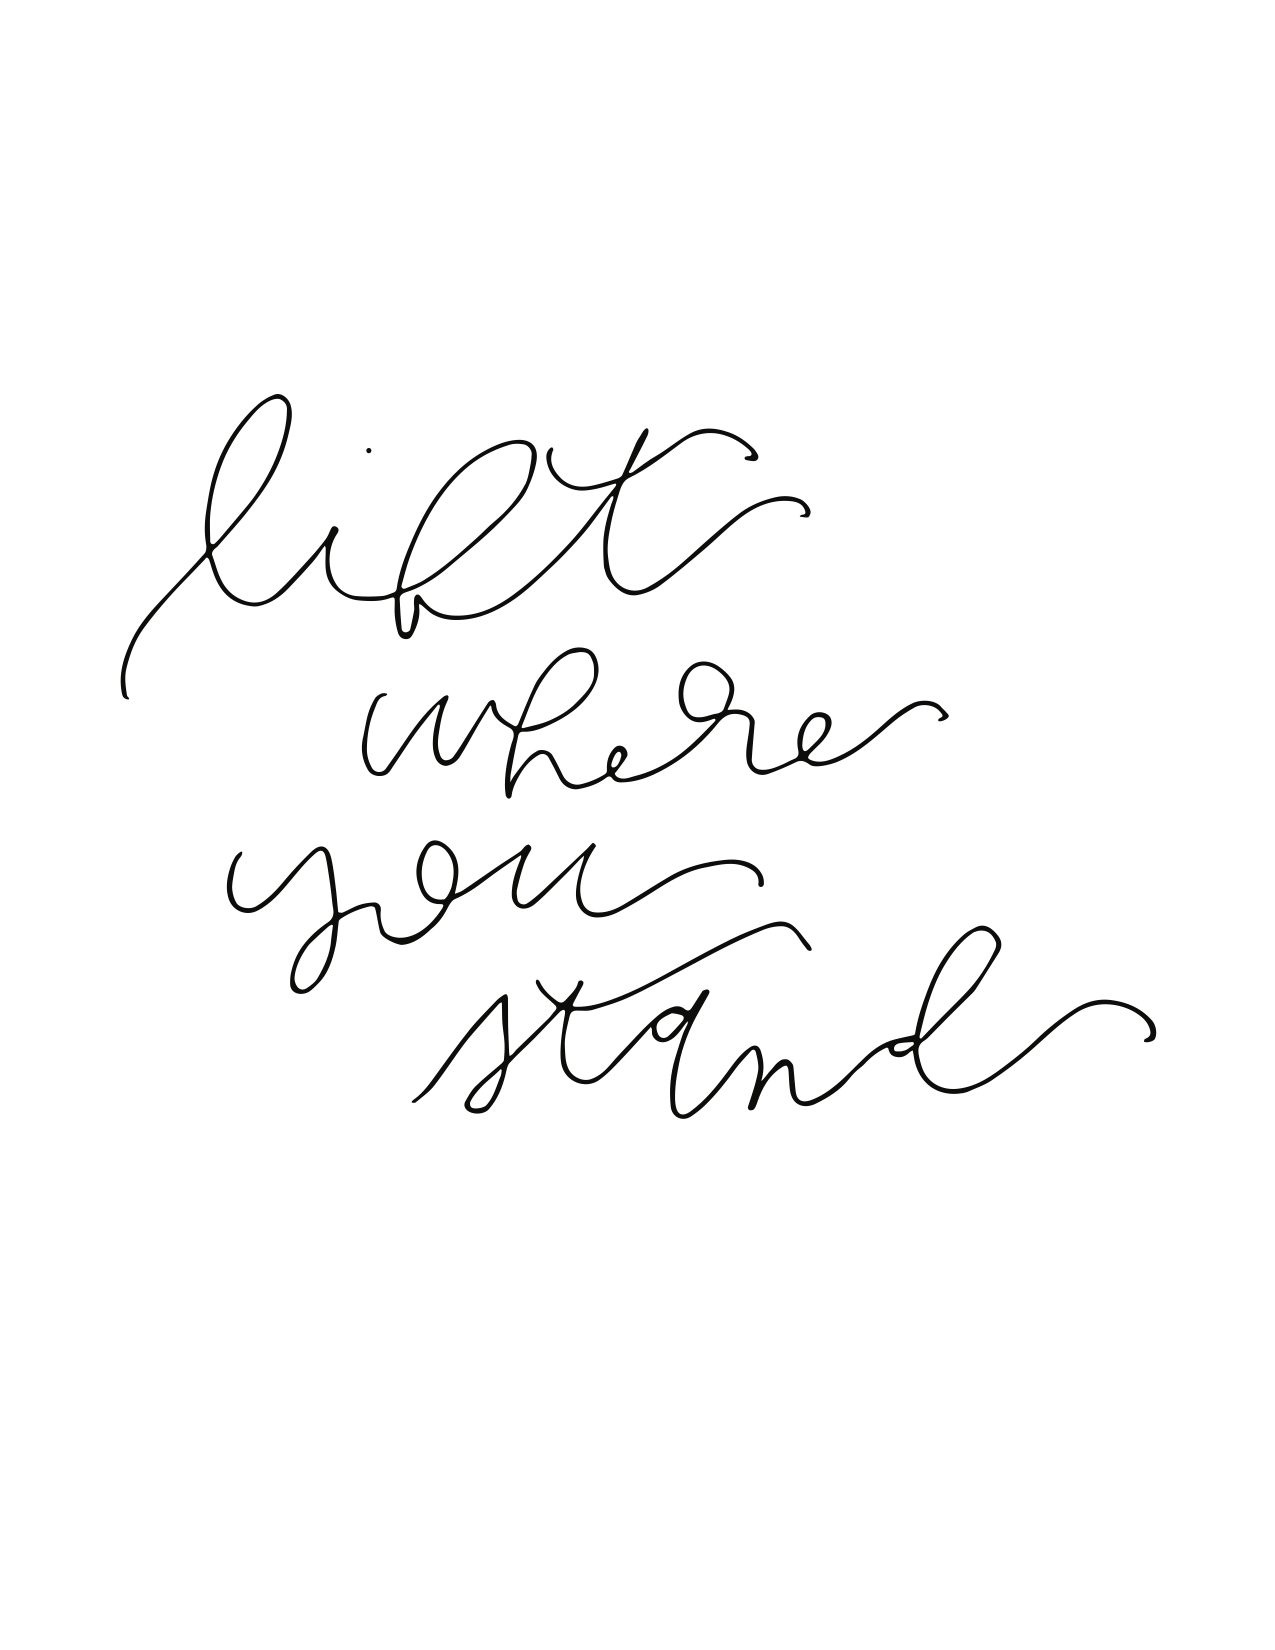 lift
where
you
stand